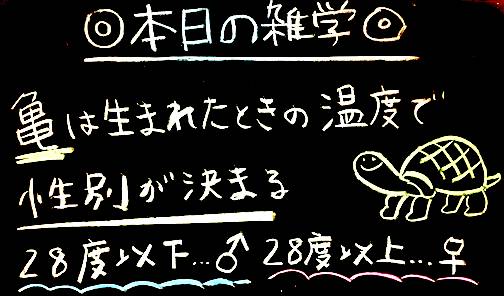 ◎本日の雑学◎
亀は生まれたときの温度で
性別が決まる
28度以下…♂ 28度以上…♀